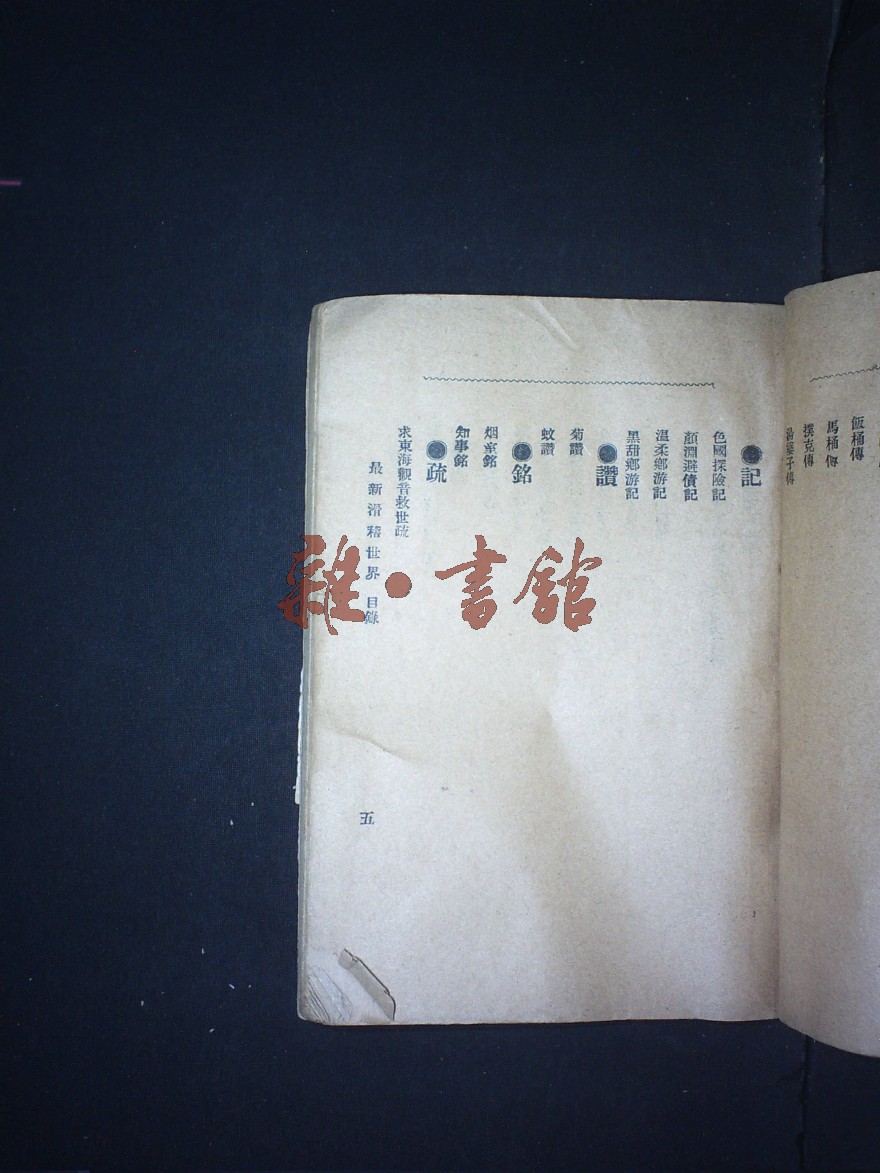 飯桶傳
馬桶傳
撲克傳
湯婆子傳
●記
色國探險記
顏淵避債記
溫柔鄉游記
黑甜鄉游記
●讚
菊讚
蚊讚
●銘
烟室銘
知事銘
●疏
求東海觀音救世疏
最新滑稽世界 目錄
五
雜·書館